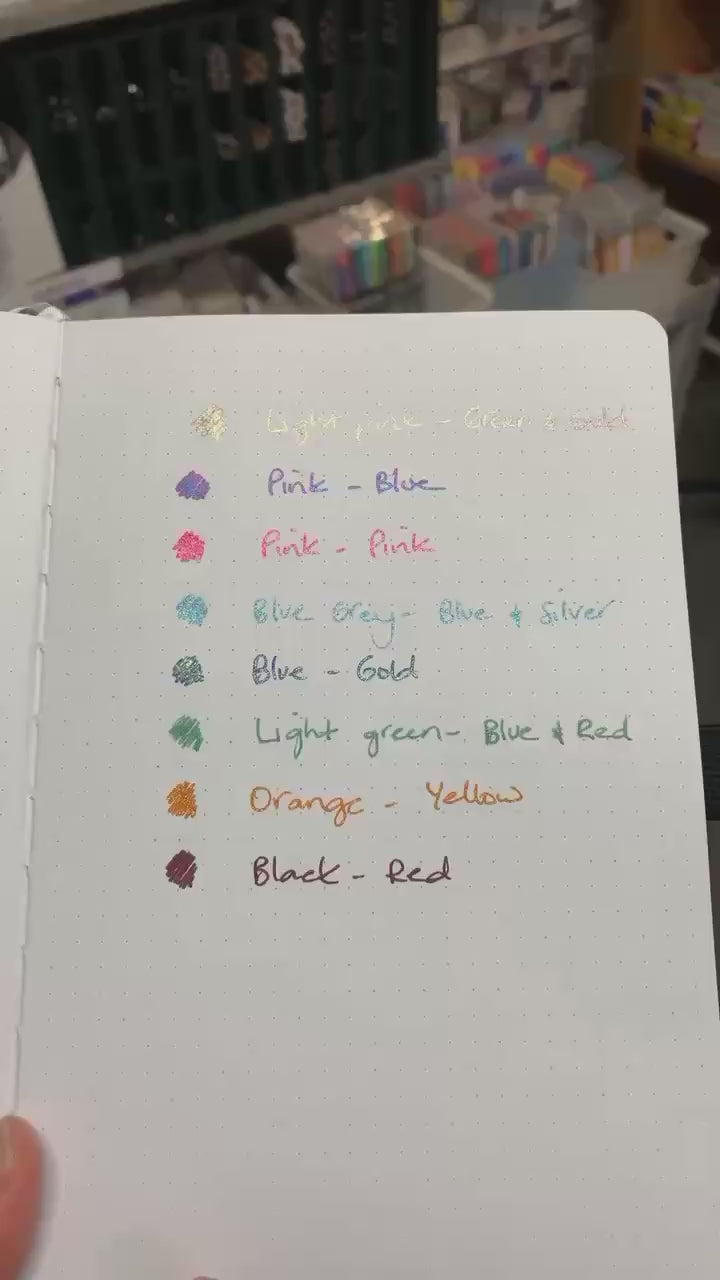 Light pink - Green & Gold
Pink - Blue
Pink - Pink
Blue Grey - Blue & Silver
Blue - Gold
Light green - Blue & Red
Orange - Yellow
Black - Red